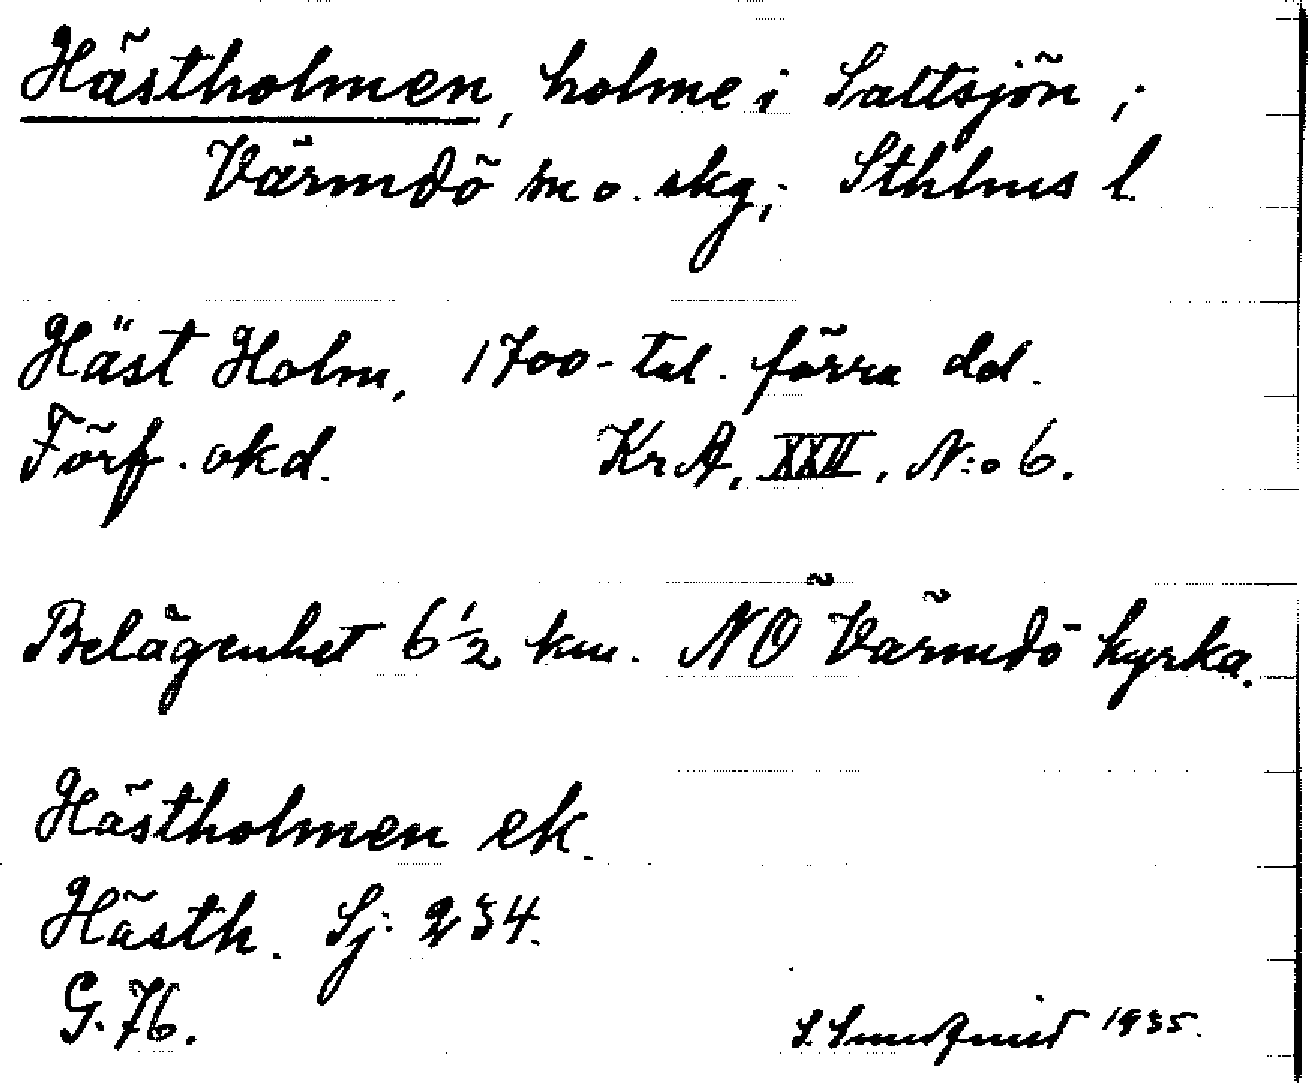 Hästholmen, holme i Saltsjön;
Värmdö m o. skg; Sthlms l.
Häst Holm, 1700-tal. förra del.
Förf. okd. KrA, XXII, N:o 6.
Belägenhet 6 1/2 km. NÖ Värmdö kyrka.
Hästholmen ek.
Hästh. Sj: 234.
G. 76.
S. Sundquist 1935.